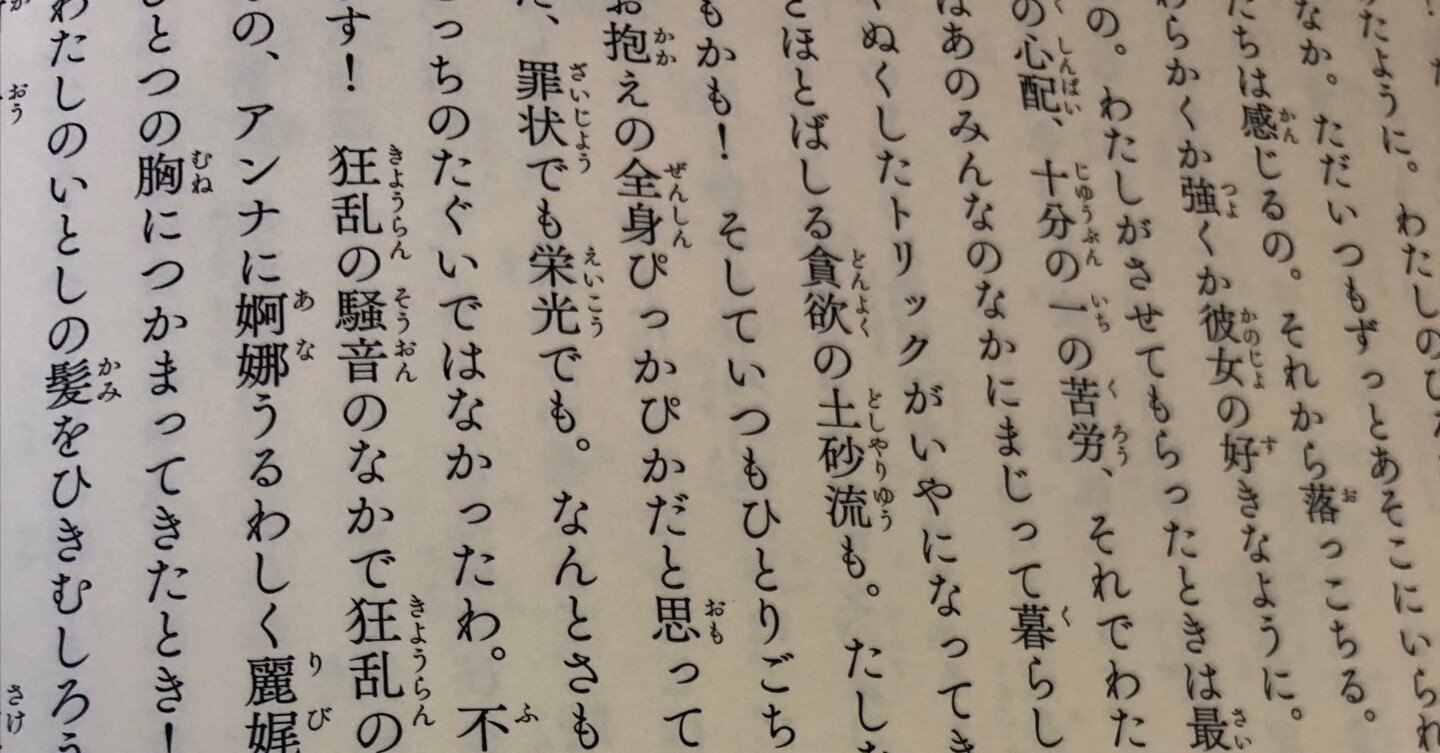 たように。わたしのひな
なか。ただいつもずっとあそこにいられ
たちは感じるの。それから落っこちる。
わらかくか強くか彼女の好きなように。
の。わたしがさせてもらったときは最
の心配、十分の一の苦労、それでわた
はあのみんなのなかにまじって暮らし
くぬくしたトリックがいやになってき
とほとばしる貪欲の土砂流も。たしな
もかも！そしていつもひとりごち
お抱えの全身ぴっかぴかだと思って
た、罪状でも栄光でも。なんとさも
っちのたぐいではなかったわ。不
す！狂乱の騒音のなかで狂乱の
の、アンナに婀娜うるわしく麗娓
ひとつの胸につかまってきたとき！
わたしのいとしの髪をひきむしろう